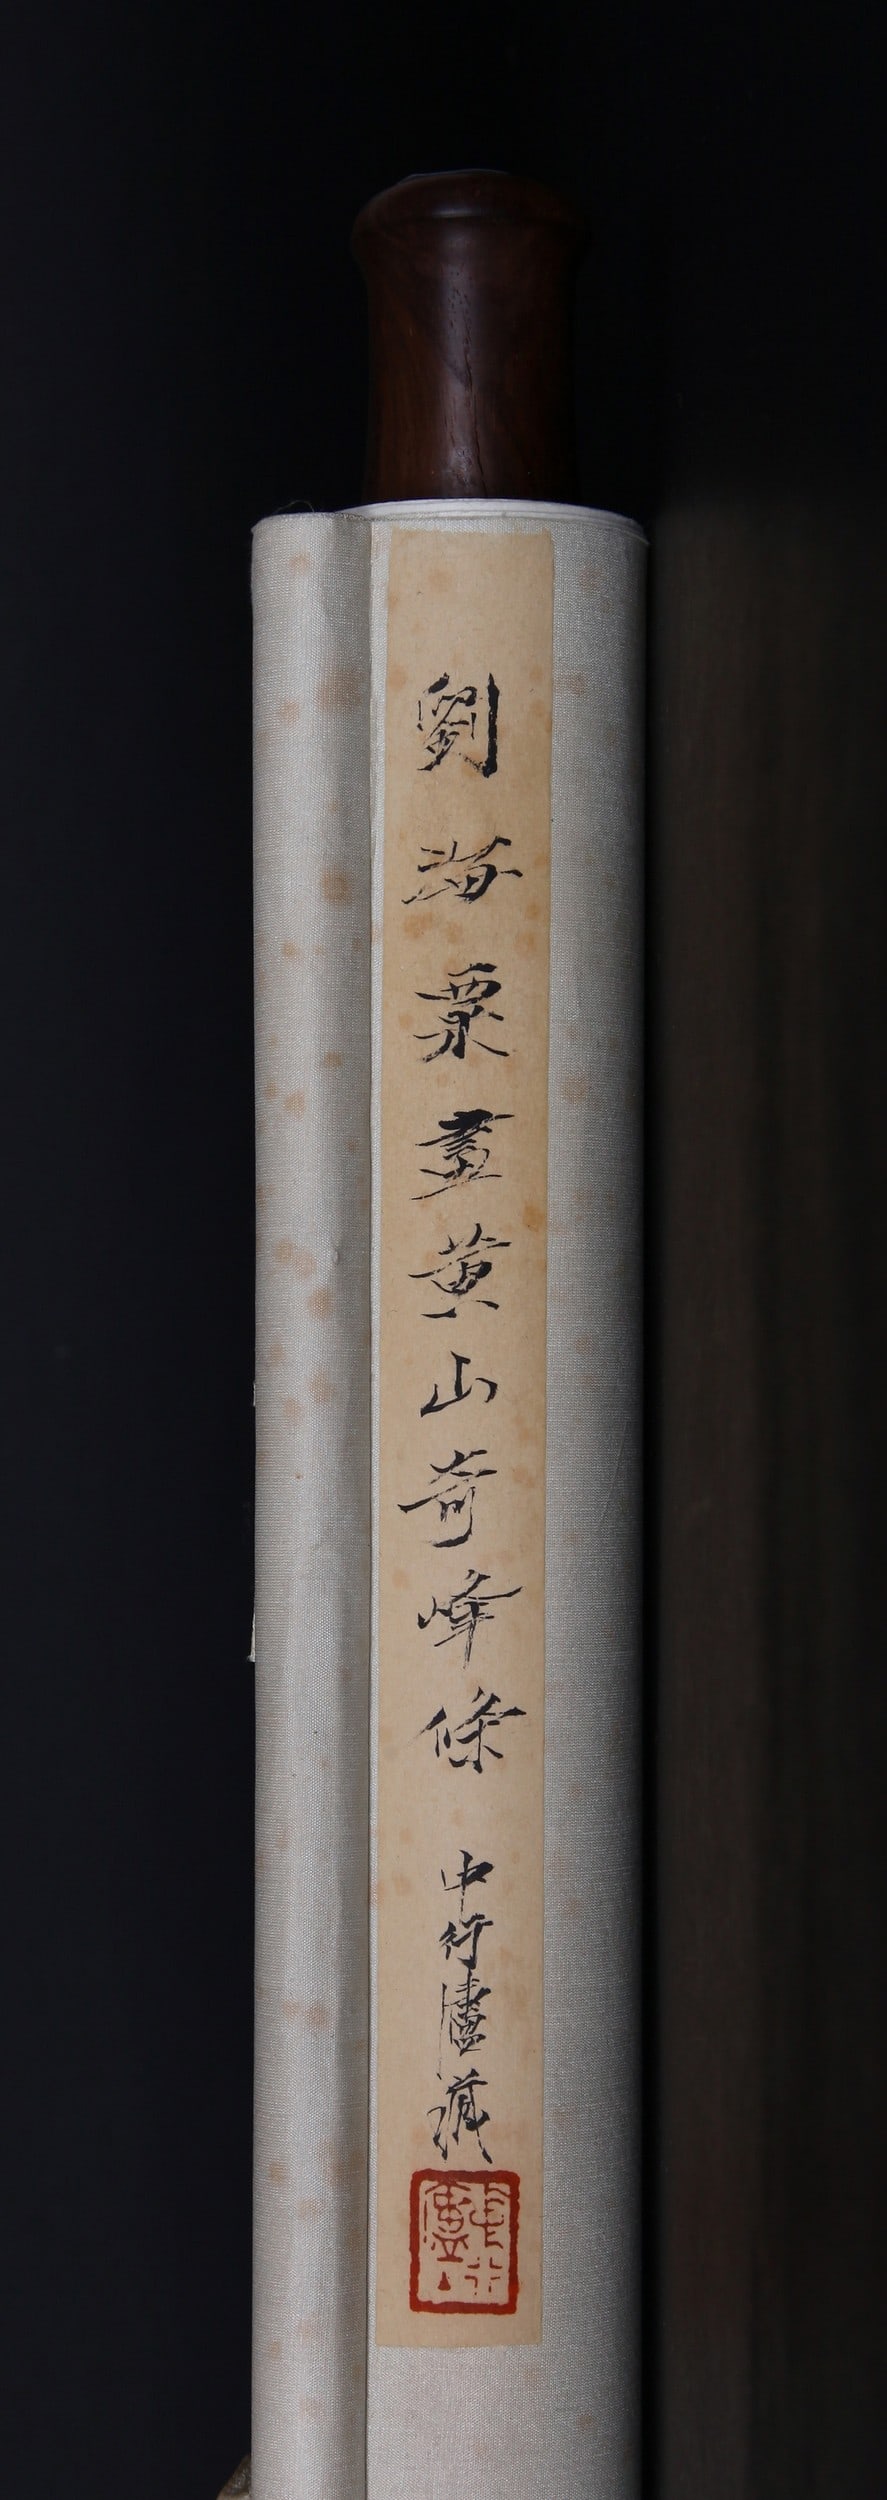 劉海粟畫黃山奇峰條
中行廬藏